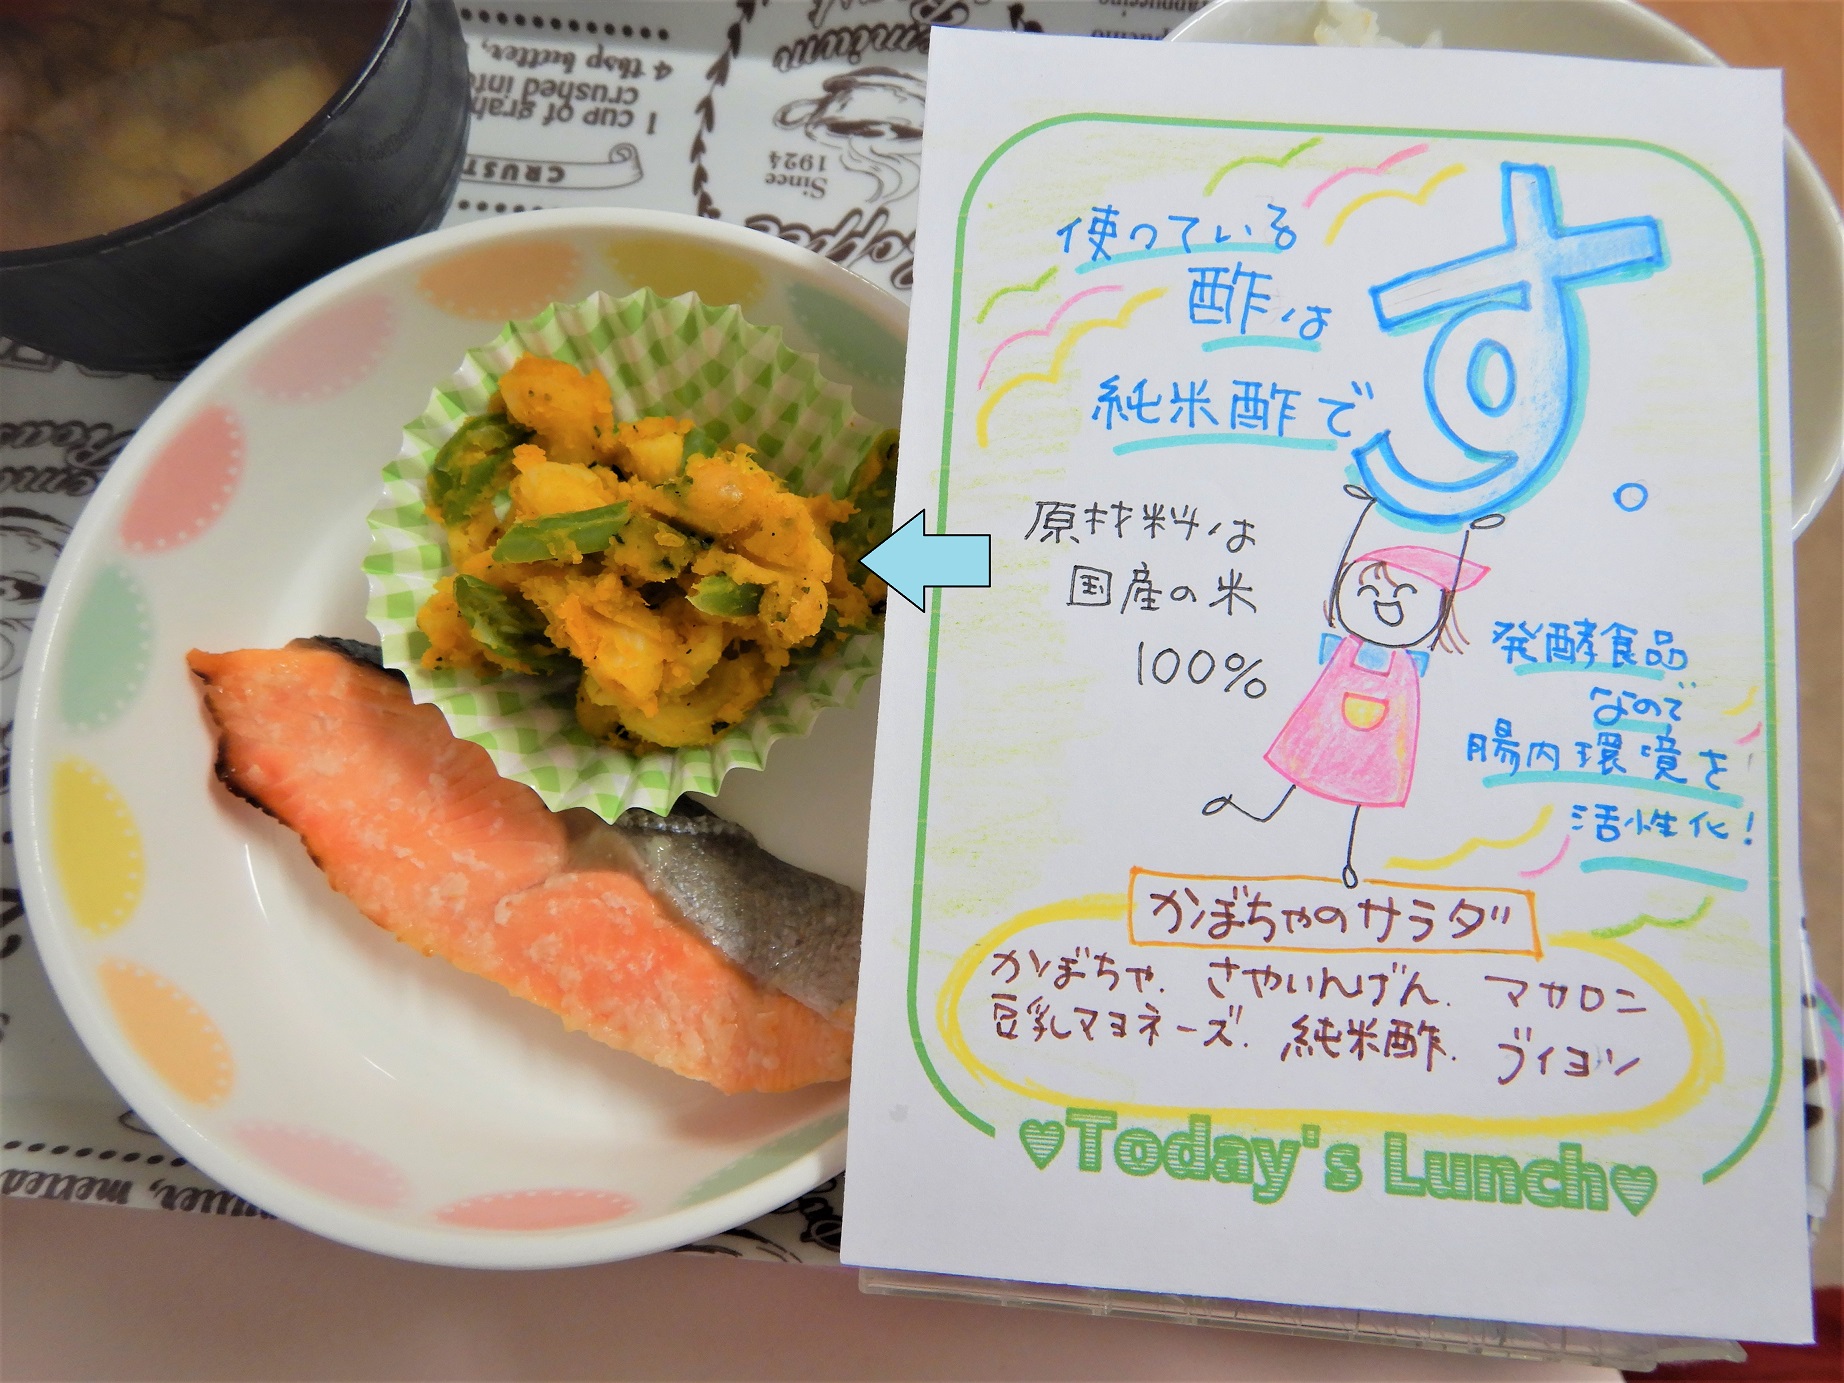 使っている
酢は
純米酢で
す。
原材料は
国産の米
100%
発酵食品
なので
腸内環境を
活性化!
かぼちゃのサラダ
かぼちゃ. さやいんげん. マカロニ
豆乳マヨネーズ. 純米酢. ブイヨン
♥Today's Lunch♥
1 cup of grah
crushed into
4 tbsp butter,
CRUST
Since
1924
Coffee